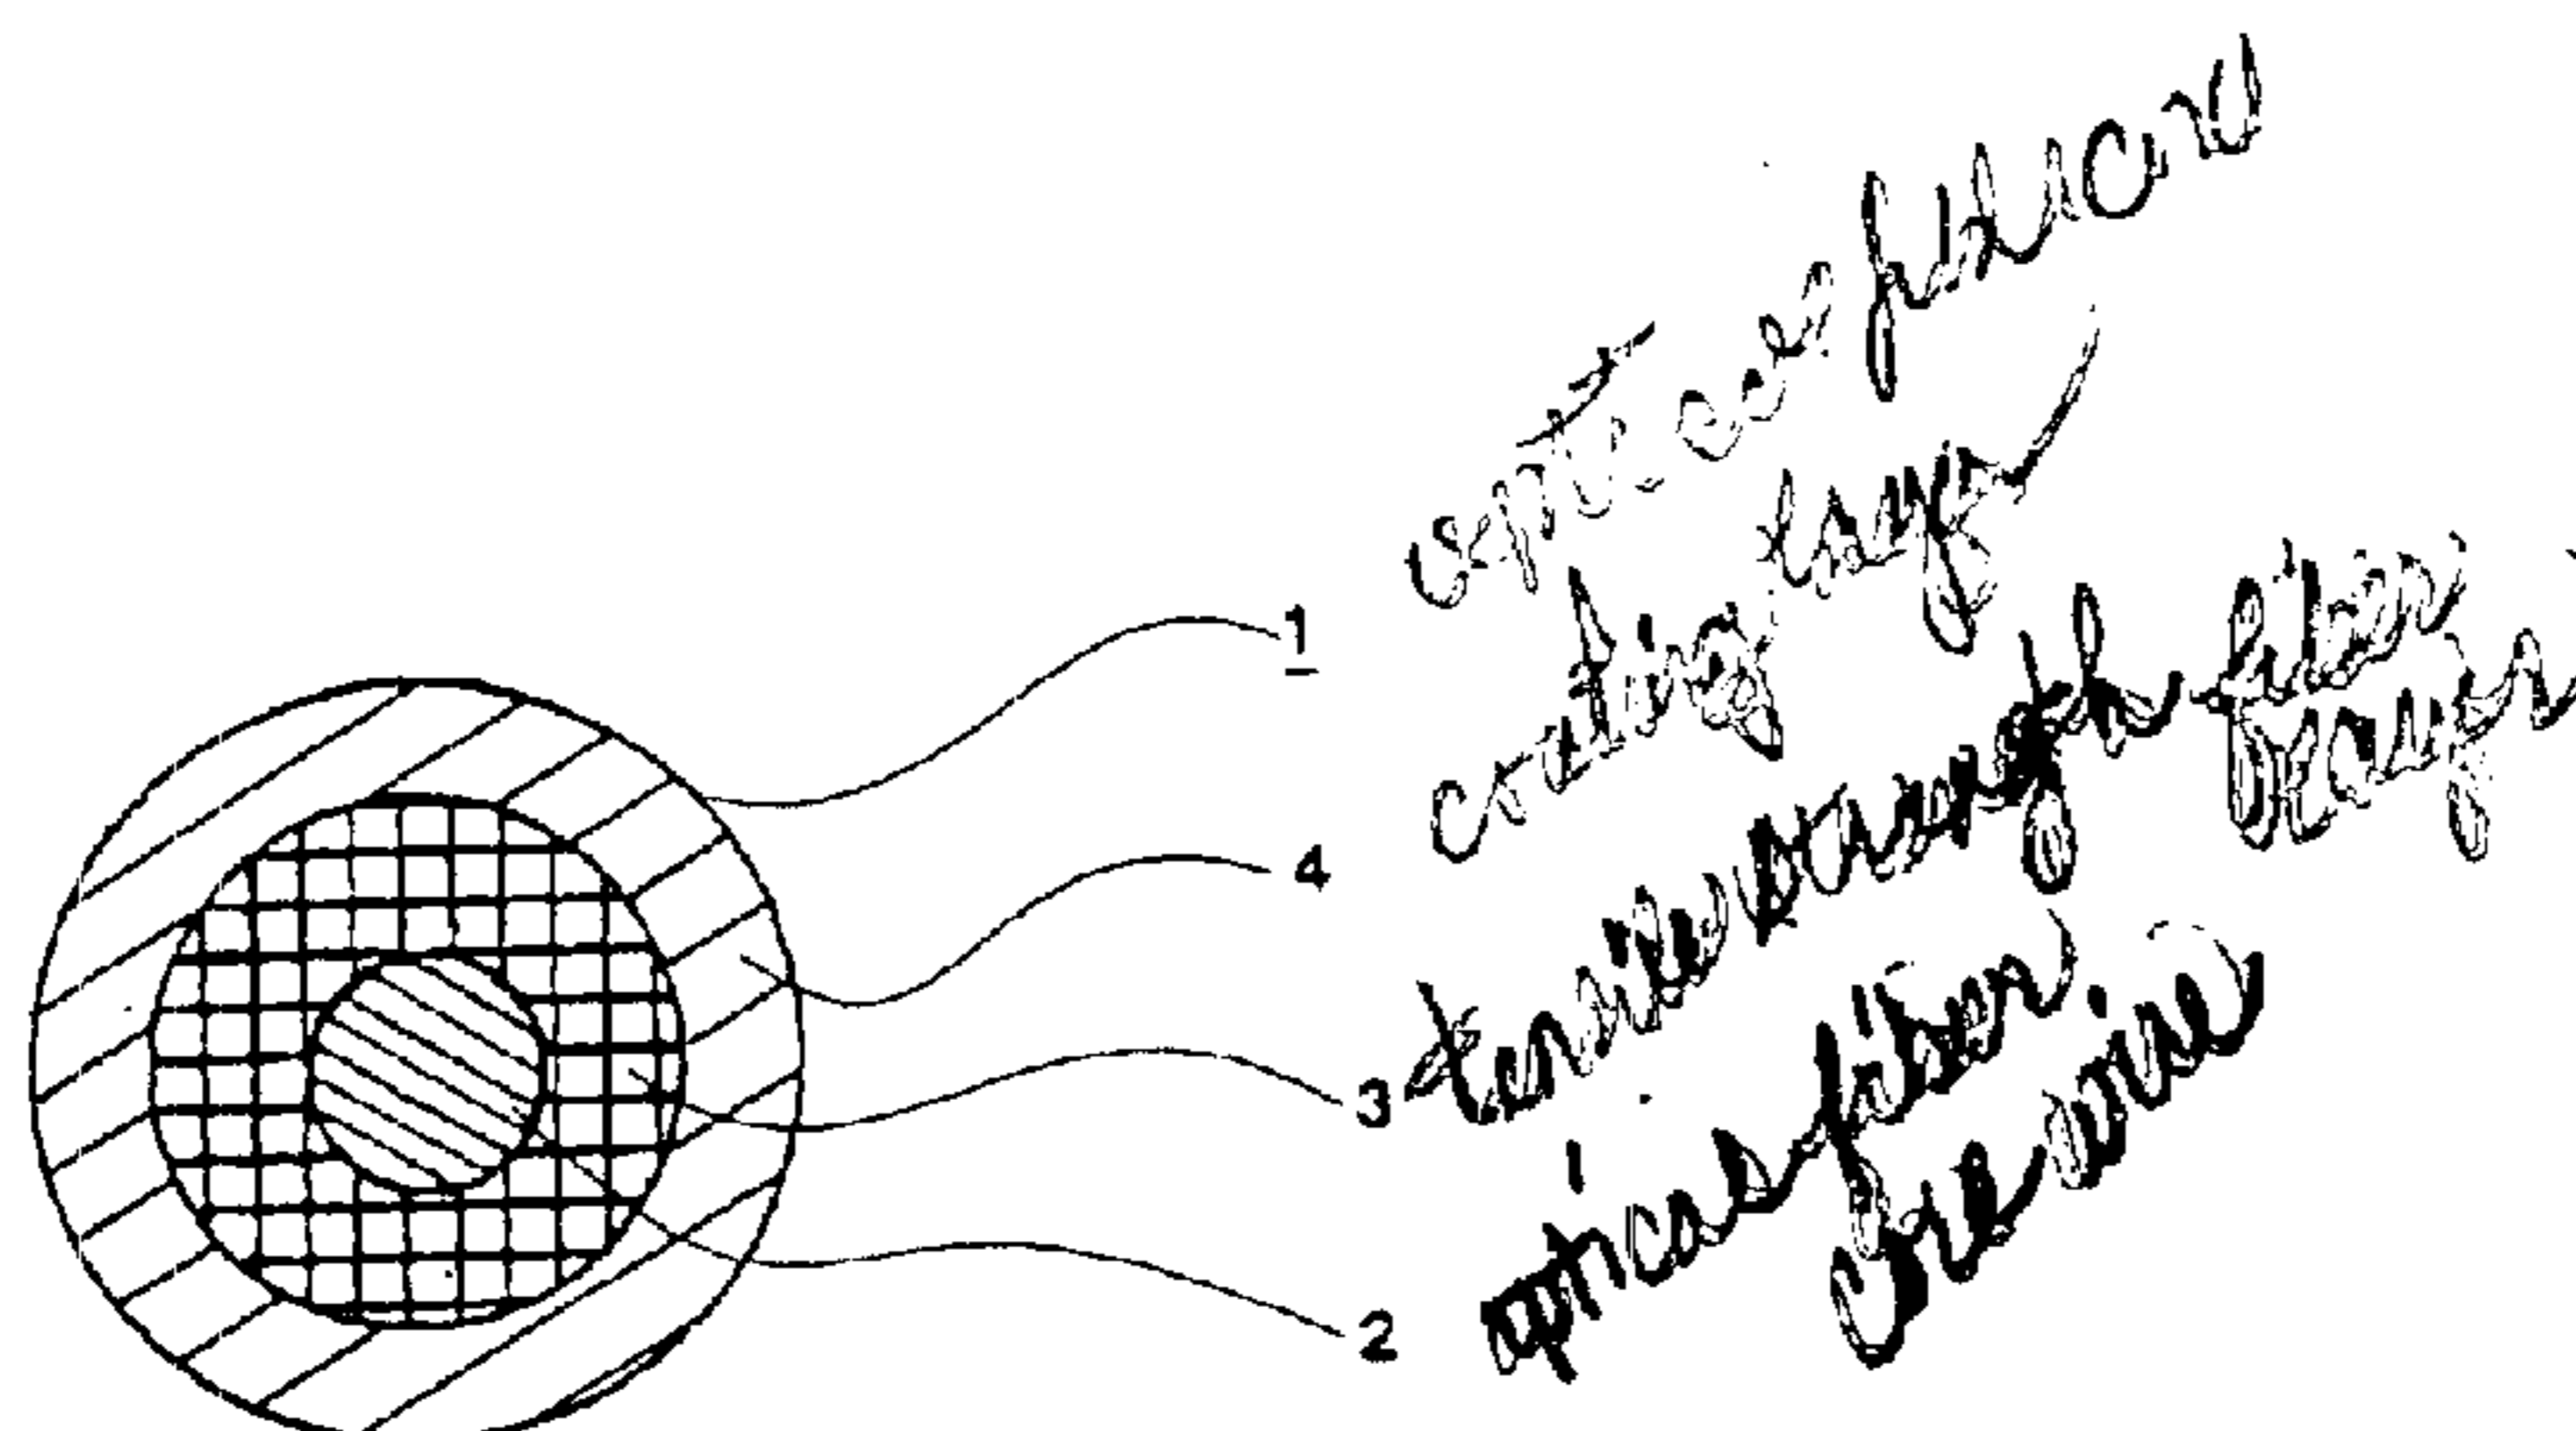 1
optical fiber cord
4
coating layer
3
tensile strength fiber
layer
2
optical fiber
core wire